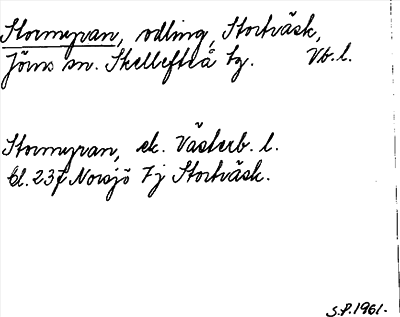 Stormyran, odling, Stortväsk,
Jörns sn. Skellefteå tg. Vb. l.
Stormyran, ek. Västerb. l.
Bl. 237 Norsjö 7j Stortväsk.
S.P. 1961.